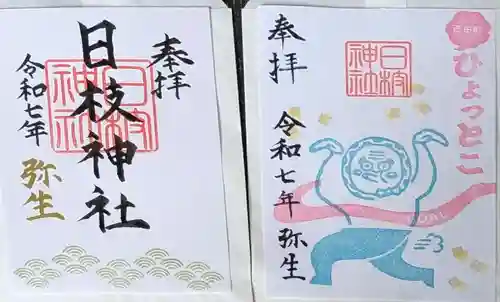 奉拝
日枝神社
令和七年
弥生
日枝神社
奉拝
令和七年 弥生
日枝神社
ひょっとこ